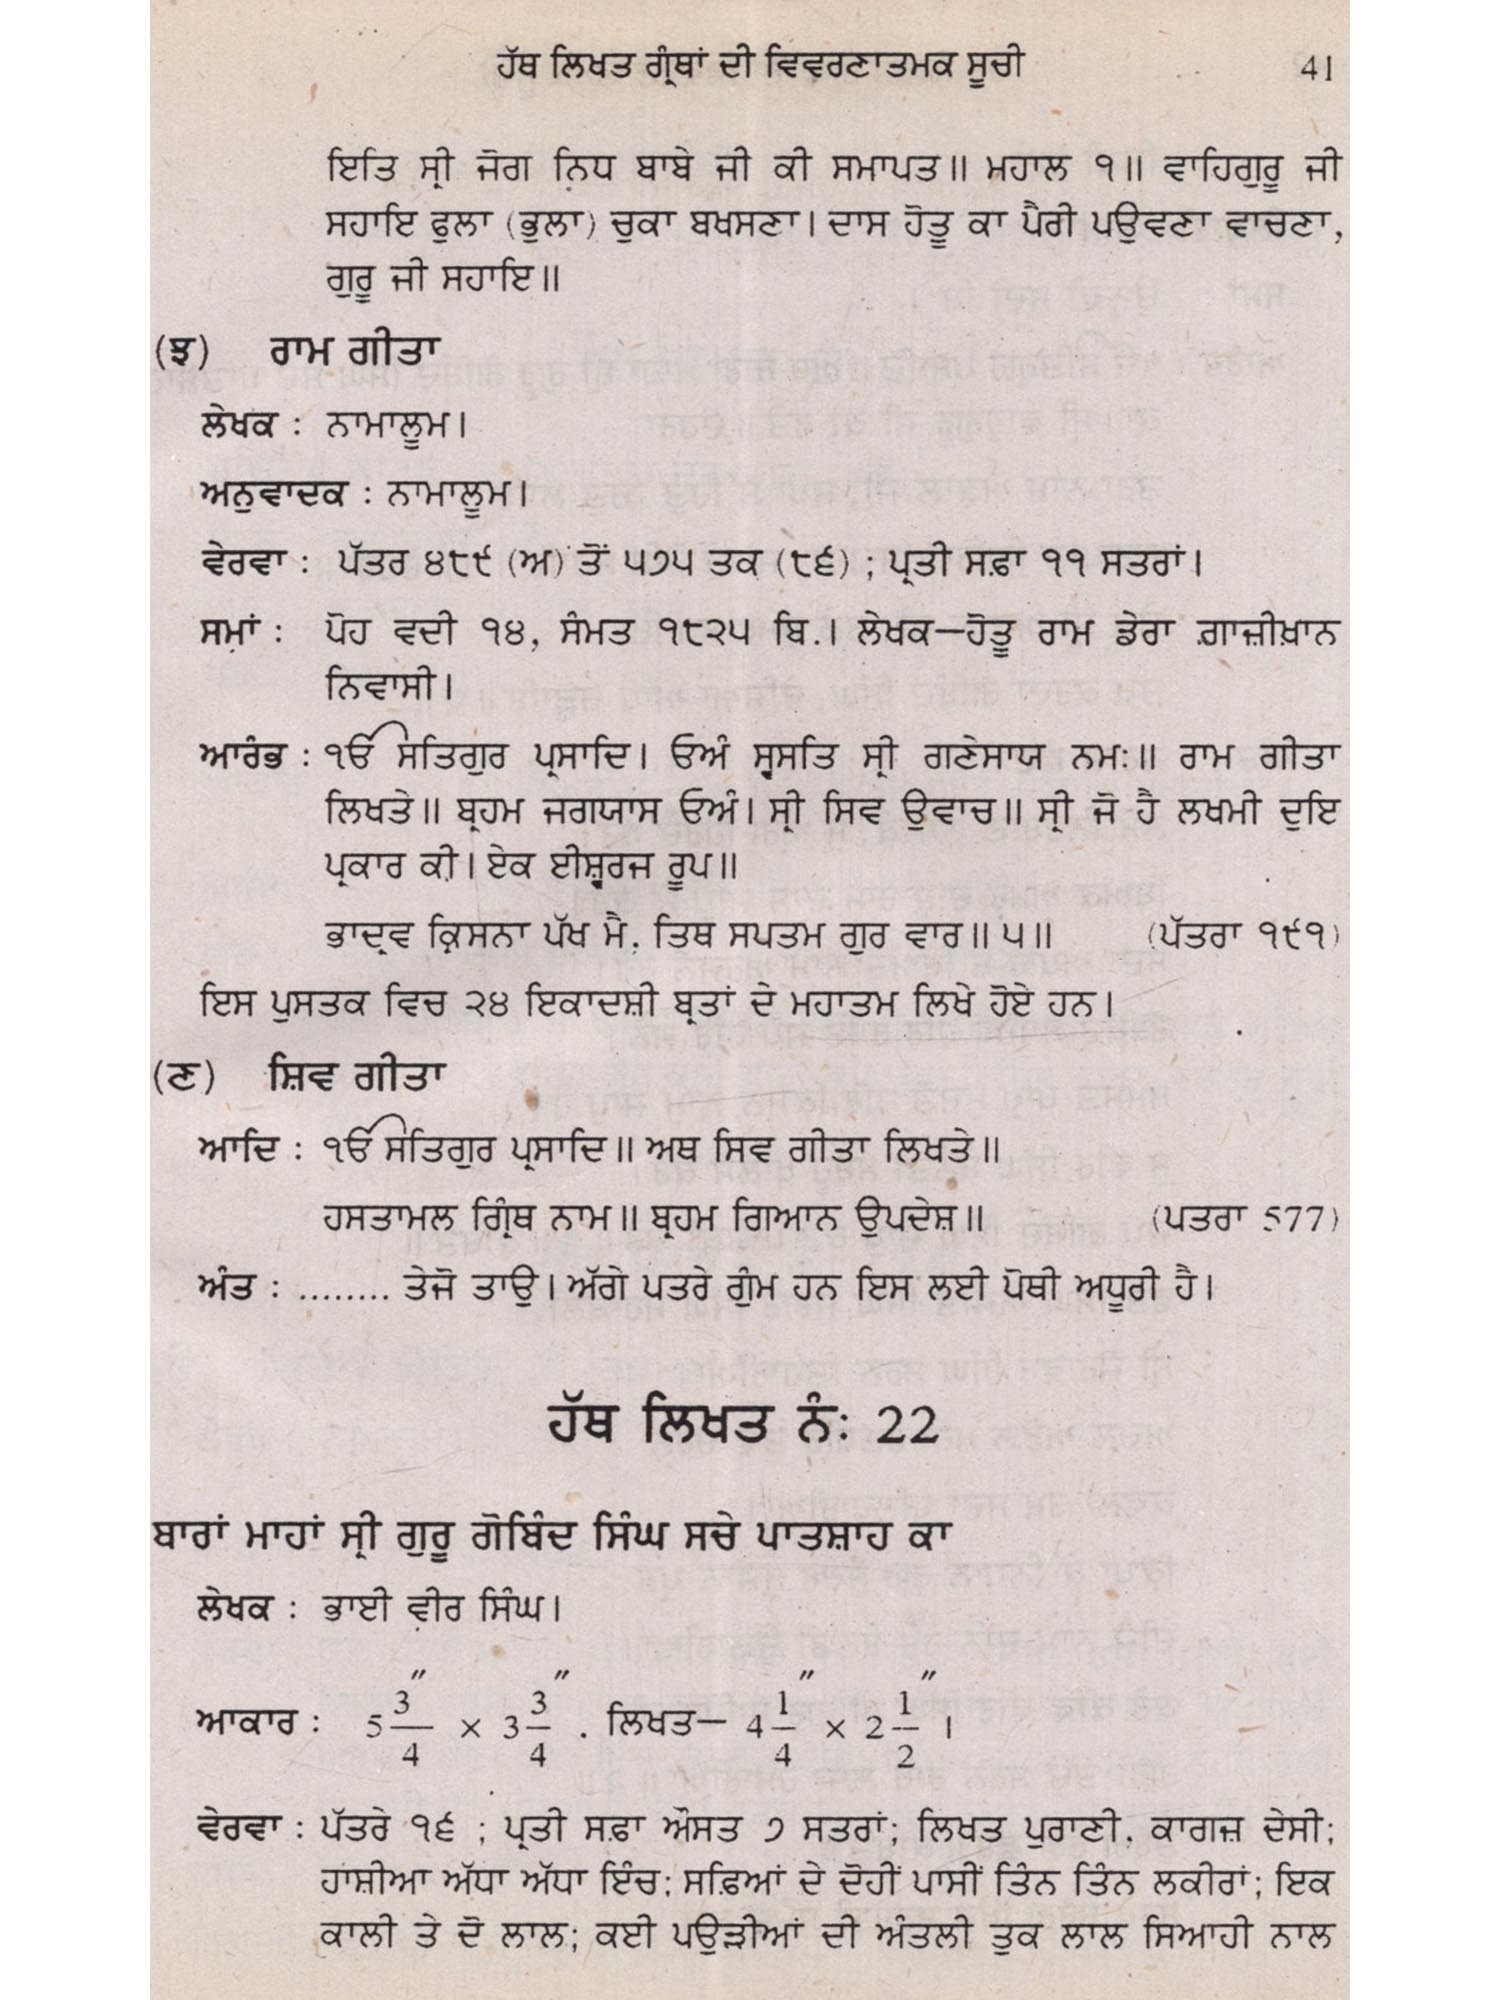 ਹੱਥ ਲਿਖਤ ਗ੍ਰੰਥਾਂ ਦੀ ਵਿਵਰਣਾਤਮਕ ਸੂਚੀ 41
ਇਤਿ ਸ੍ਰੀ ਜੋਗ ਨਿਧ ਬਾਬੇ ਜੀ ਕੀ ਸਮਾਪਤ॥ ਮਹਾਲ ੧॥ ਵਾਹਿਗੁਰੂ ਜੀ
ਸਹਾਇ ਫੁਲਾ (ਭੁਲਾ) ਚੁਕਾ ਬਖਸਣਾ। ਦਾਸ ਹੋਤੂ ਕਾ ਪੈਰੀ ਪਉਵਣਾ ਵਾਚਣਾ,
ਗੁਰੂ ਜੀ ਸਹਾਇ॥
(ਝ) ਰਾਮ ਗੀਤਾ
ਲੇਖਕ : ਨਾਮਾਲੂਮ।
ਅਨੁਵਾਦਕ : ਨਾਮਾਲੂਮ।
ਵੇਰਵਾ : ਪੱਤਰ ੪੮੯ (ਅ) ਤੋਂ ੫੭੫ ਤਕ (੮੬) ; ਪ੍ਰਤੀ ਸਫ਼ਾ ੧੧ ਸਤਰਾਂ।
ਸਮਾਂ : ਪੋਹ ਵਦੀ ੧੪, ਸੰਮਤ ੧੮੨੫ ਬਿ.। ਲੇਖਕ—ਹੋਤੂ ਰਾਮ ਡੇਰਾ ਗ਼ਾਜ਼ੀਖ਼ਾਨ
ਨਿਵਾਸੀ।
ਆਰੰਭ : ੴ ਸਤਿਗੁਰ ਪ੍ਰਸਾਦਿ। ਓਅੰ ਸ੍ਵਸਤਿ ਸ੍ਰੀ ਗਣੇਸਾਯ ਨਮਃ॥ ਰਾਮ ਗੀਤਾ
ਲਿਖਤੇ॥ ਬ੍ਰਹਮ ਜਗਯਾਸ ਓਅੰ। ਸ੍ਰੀ ਸਿਵ ਉਵਾਚ॥ ਸ੍ਰੀ ਜੋ ਹੈ ਲਖਮੀ ਦੁਇ
ਪ੍ਰਕਾਰ ਕੀ। ਏਕ ਈਸ਼੍ਵਰਜ ਰੂਪ॥
ਭਾਦ੍ਰਵ ਕ੍ਰਿਸਨਾ ਪੱਖ ਮੈ, ਤਿਥ ਸਪਤਮ ਗੁਰ ਵਾਰ॥ ੫॥ (ਪੱਤਰਾ ੧੯੧)
ਇਸ ਪੁਸਤਕ ਵਿਚ ੨੪ ਇਕਾਦਸ਼ੀ ਬ੍ਰਤਾਂ ਦੇ ਮਹਾਤਮ ਲਿਖੇ ਹੋਏ ਹਨ।
(ਣ) ਸ਼ਿਵ ਗੀਤਾ
ਆਦਿ : ੴ ਸਤਿਗੁਰ ਪ੍ਰਸਾਦਿ॥ ਅਥ ਸਿਵ ਗੀਤਾ ਲਿਖਤੇ॥
ਹਸਤਾਮਲ ਗ੍ਰਿੰਥ ਨਾਮ॥ ਬ੍ਰਹਮ ਗਿਆਨ ਉਪਦੇਸ਼॥ (ਪਤਰਾ 577)
ਅੰਤ : ........ ਤੇਜੋ ਤਾਉ। ਅੱਗੇ ਪਤਰੇ ਗੁੰਮ ਹਨ ਇਸ ਲਈ ਪੋਥੀ ਅਧੂਰੀ ਹੈ।
ਹੱਥ ਲਿਖਤ ਨੰ: 22
ਬਾਰਾਂ ਮਾਹਾਂ ਸ੍ਰੀ ਗੁਰੂ ਗੋਬਿੰਦ ਸਿੰਘ ਸਚੇ ਪਾਤਸ਼ਾਹ ਕਾ
ਲੇਖਕ : ਭਾਈ ਵੀਰ ਸਿੰਘ।
ਆਕਾਰ : 5 3/4″ × 3 3/4″ . ਲਿਖਤ— 4 1/4″ × 2 1/2″ ।
ਵੇਰਵਾ : ਪੱਤਰੇ ੧੬ ; ਪ੍ਰਤੀ ਸਫ਼ਾ ਔਸਤ ੭ ਸਤਰਾਂ; ਲਿਖਤ ਪੁਰਾਣੀ, ਕਾਗਜ਼ ਦੇਸੀ;
ਹਾਸ਼ੀਆ ਅੱਧਾ ਅੱਧਾ ਇੰਚ; ਸਫ਼ਿਆਂ ਦੇ ਦੋਹੀਂ ਪਾਸੀਂ ਤਿੰਨ ਤਿੰਨ ਲਕੀਰਾਂ; ਇਕ
ਕਾਲੀ ਤੇ ਦੋ ਲਾਲ; ਕਈ ਪਉੜੀਆਂ ਦੀ ਅੰਤਲੀ ਤੁਕ ਲਾਲ ਸਿਆਹੀ ਨਾਲ